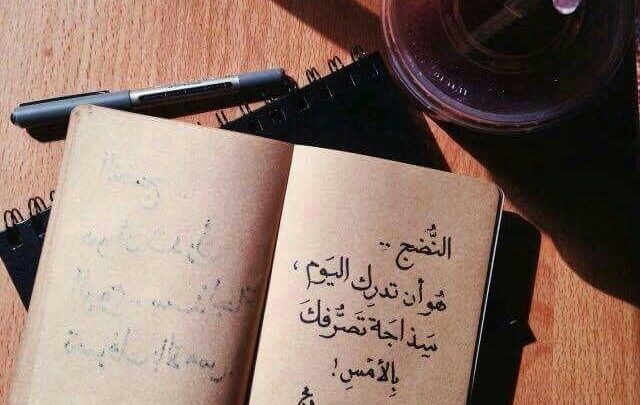 النُّضج ..
هُو أن تدرِك اليَوم ،
سَذاجَة تَصَرُّفكَ
بِالأَمْسِ !